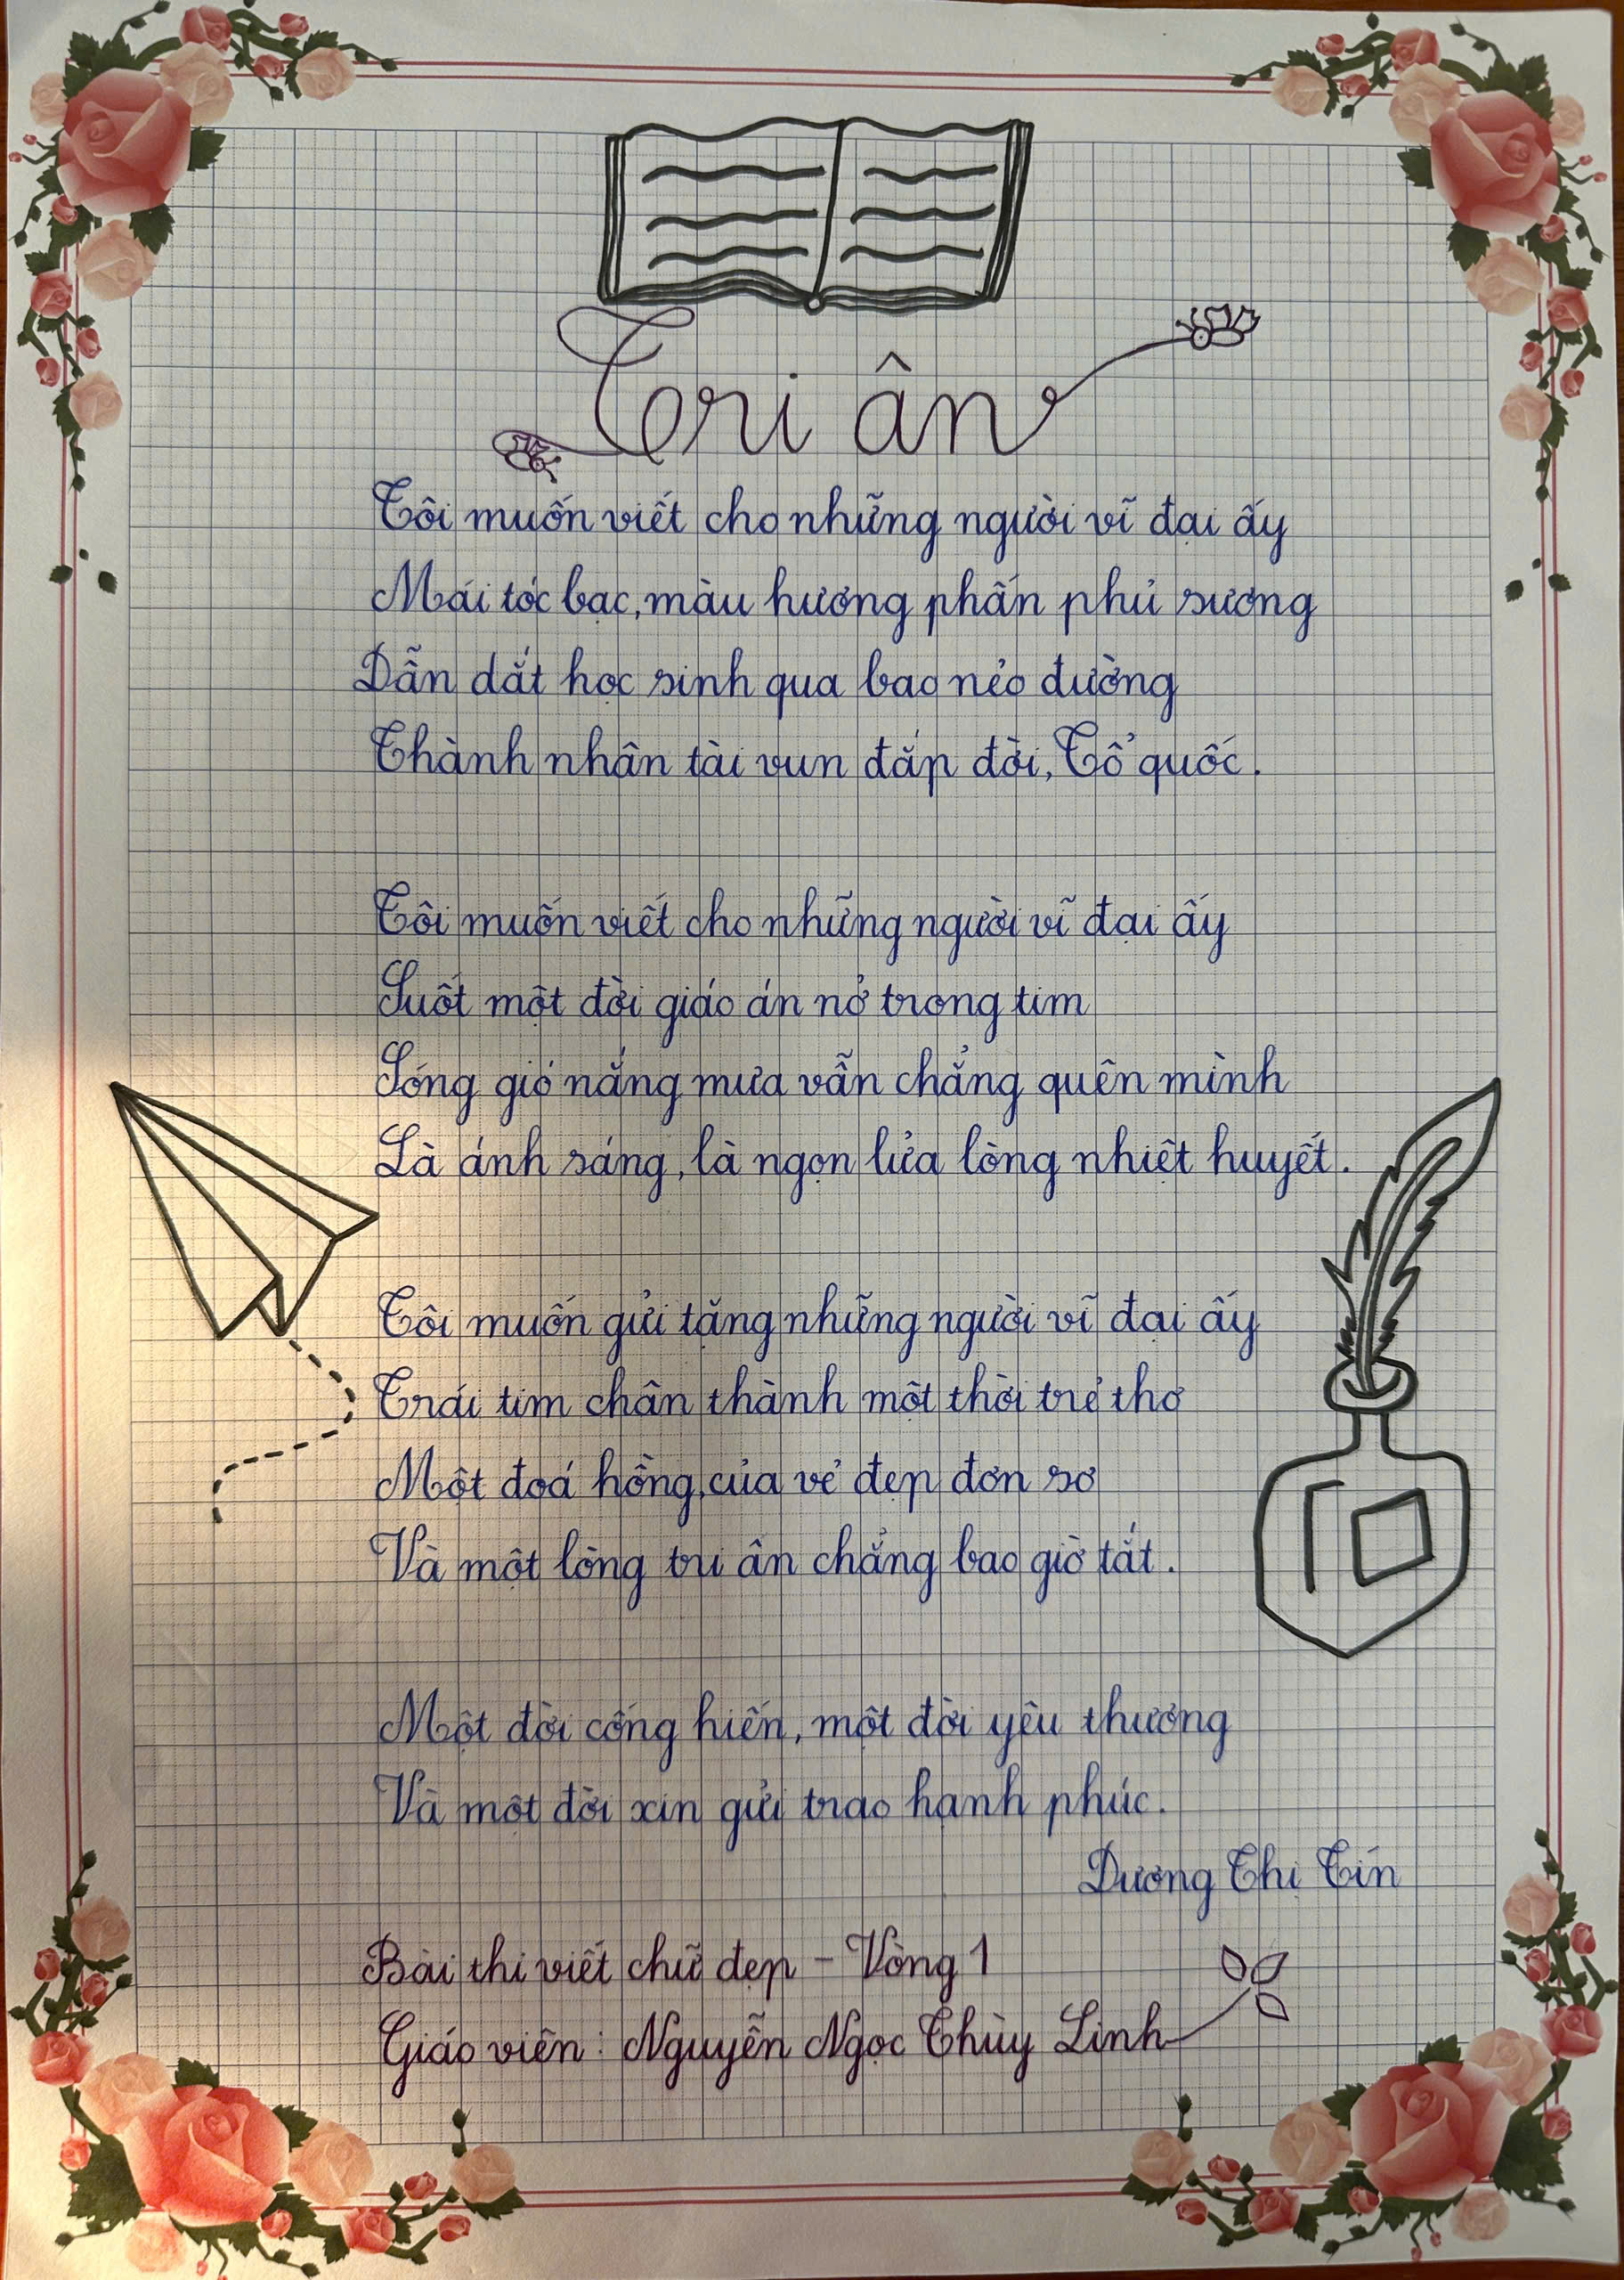 Tri ân
Tôi muốn viết cho những người vĩ đại ấy
Mái tóc bạc, màu hương phấn phủ sương
Dẫn dắt học sinh qua bao nẻo đường
Thành nhân tài vun đắp đời, Tổ quốc.
Tôi muốn viết cho những người vĩ đại ấy
Suốt một đời giáo án nở trong tim
Sóng gió nắng mưa vẫn chẳng quên mình
Là ánh sáng, là ngọn lửa lòng nhiệt huyết.
Tôi muốn gửi tặng những người vĩ đại ấy
Trái tim chân thành một thời trẻ thơ
Một đoá hồng, của vẻ đẹp đơn sơ
Và một lòng tri ân chẳng bao giờ tắt.
Một đời cống hiến, một đời yêu thương
Và một đời xin gửi trao hạnh phúc.
Dương Thị Tín
Bài thi viết chữ đẹp - Vòng 1
Giáo viên: Nguyễn Ngọc Thùy Linh